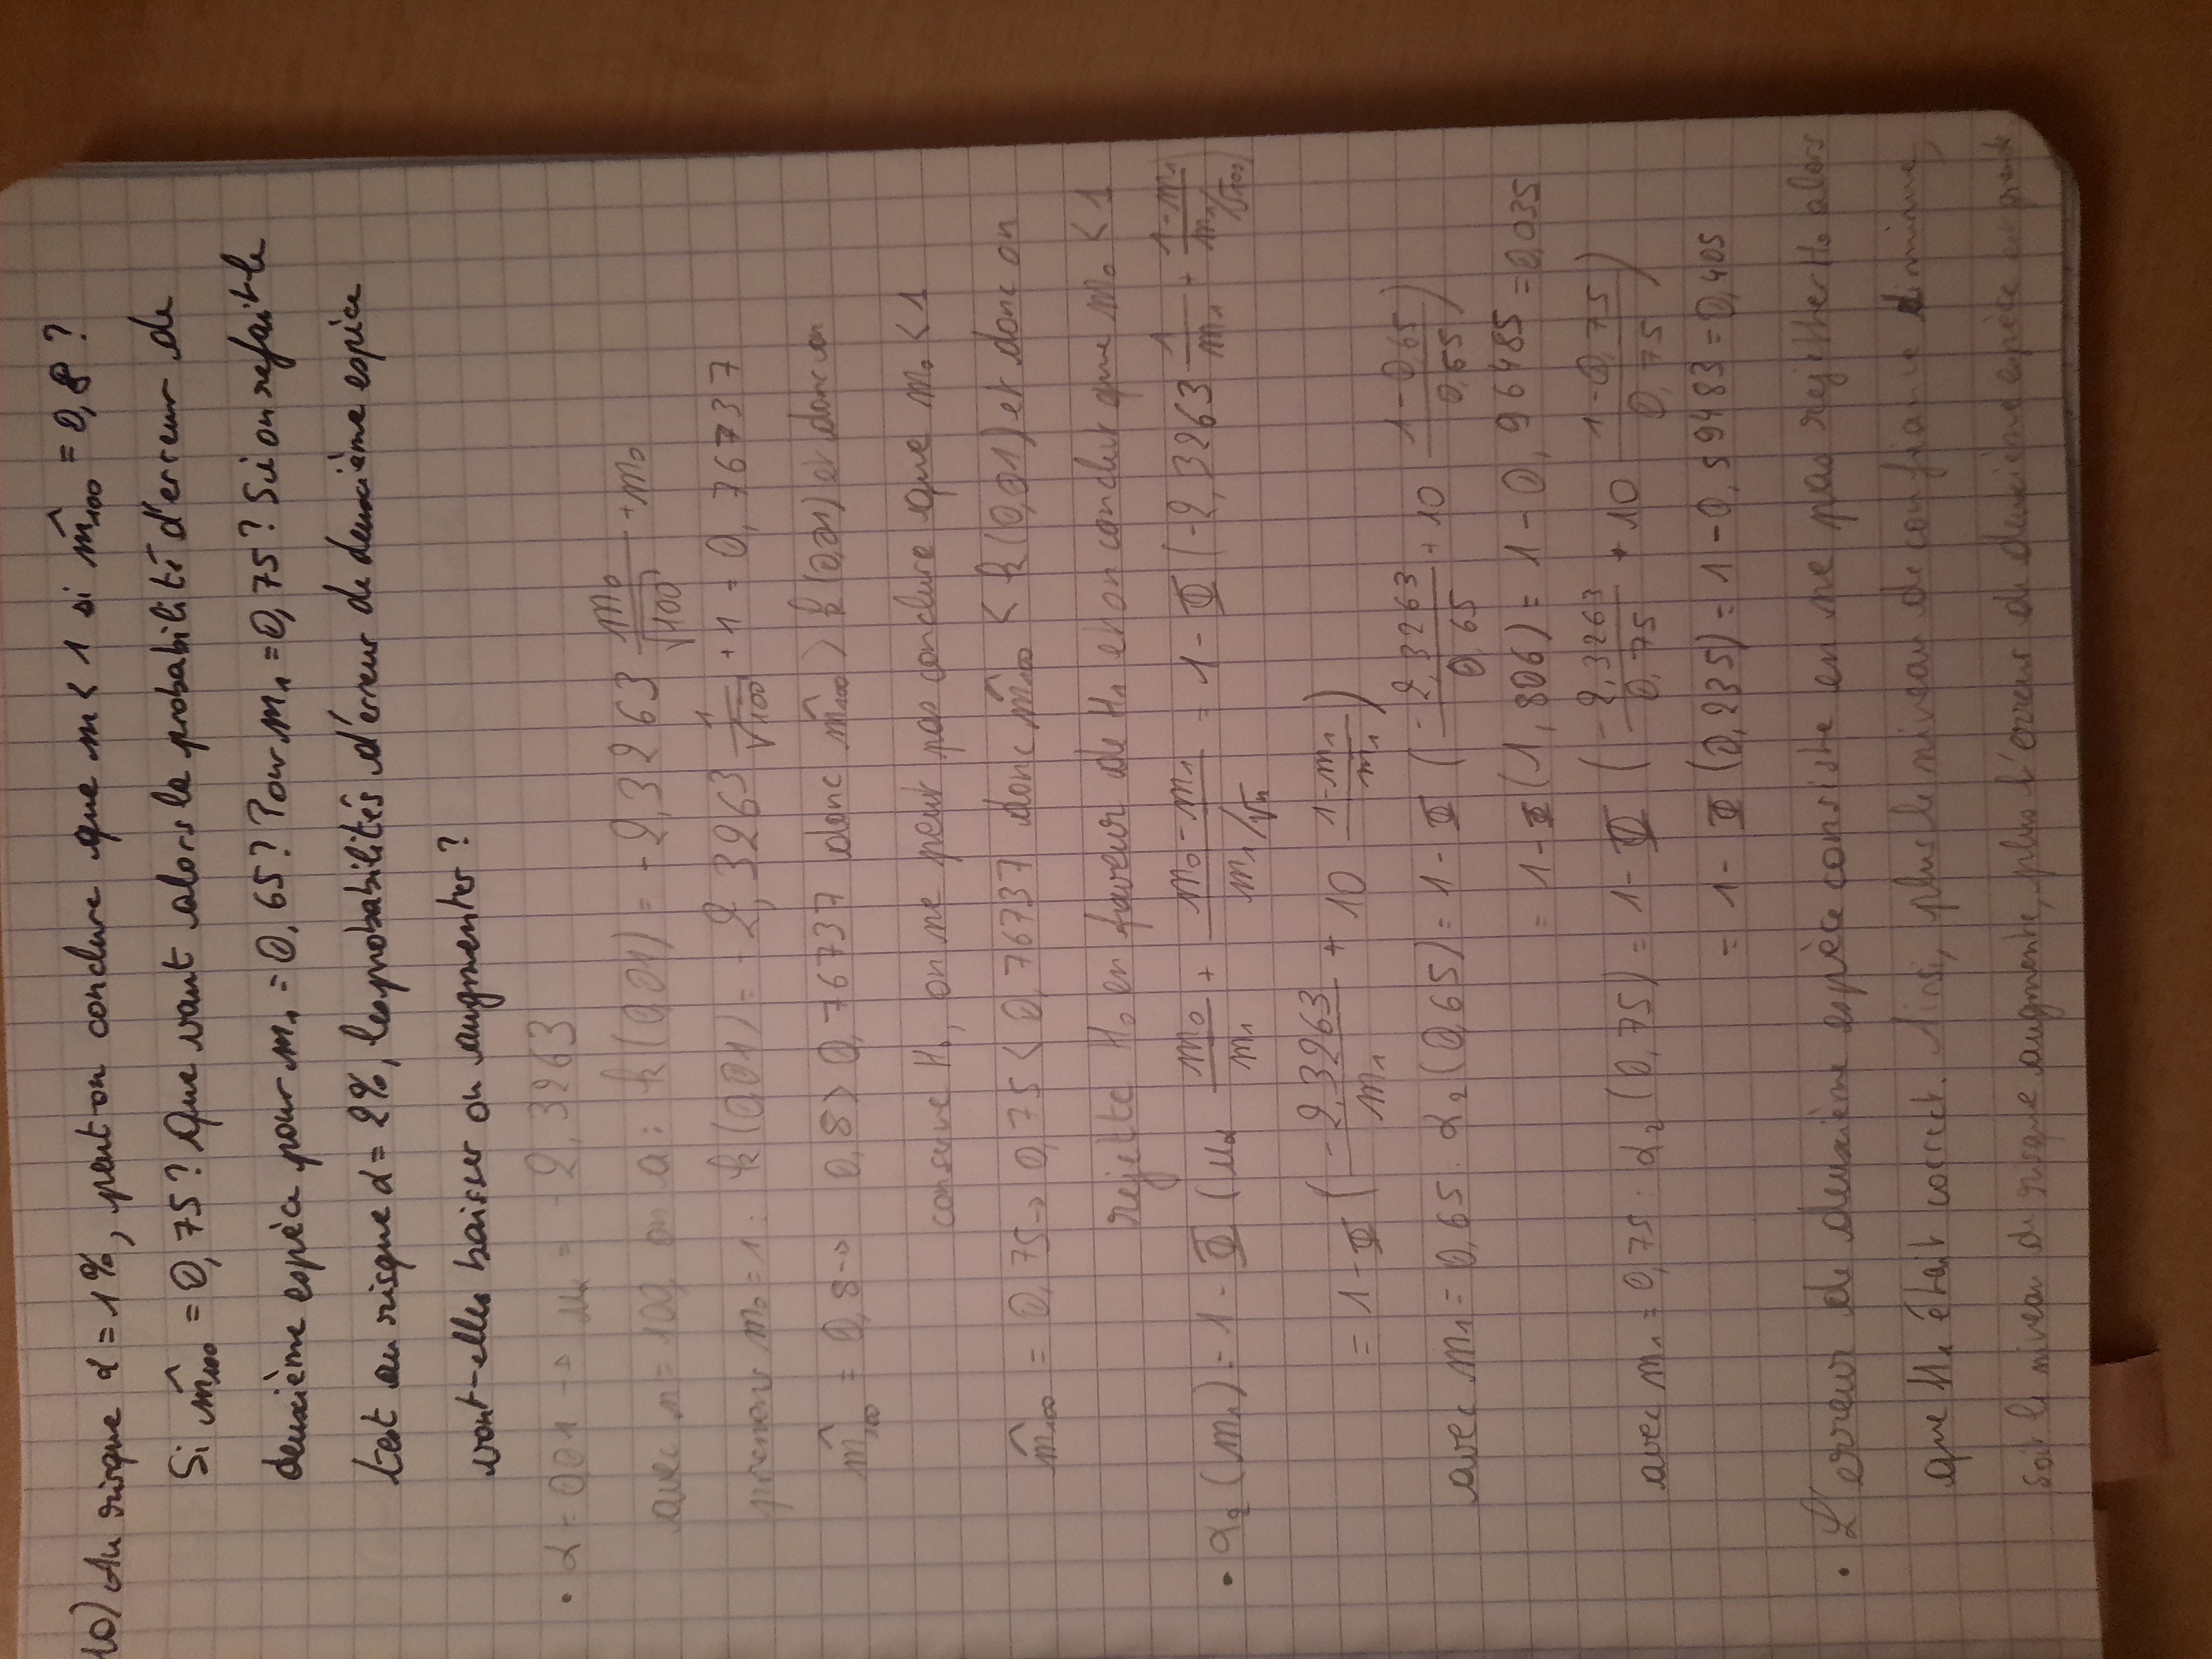 10) Au risque α = 1%, peut-on conclure que m < 1 si m̂₁₀₀ = 0,8 ?
Si m̂₁₀₀ = 0,75 ? Que vaut alors la probabilité d'erreur de
deuxième espèce pour m₁ = 0,65 ? Pour m₁ = 0,75 ? Si on refait le
test au risque α = 2%, les probabilités d'erreur de deuxième espèce
vont-elles baisser ou augmenter ?
• α = 0,01 → uα = -2,3263
avec n = 100, on a : k(0,01) = -2,3263 m₀/√100 + m₀
prenons m₀ = 1 : k(0,01) = -2,3263 1/√100 + 1 = 0,76737
m̂₁₀₀ = 0,8 → 0,8 > 0,76737 donc m̂₁₀₀ > k(0,01) et donc on
conserve H₀, on ne peut pas conclure que m₀ < 1
m̂₁₀₀ = 0,75 → 0,75 < 0,76737 donc m̂₁₀₀ < k(0,01) et donc on
rejette H₀ en faveur de H₁ et on conclut que m₀ < 1
• α₂(m₁) = 1 - Φ(uα m₀/m₁ + (m₀ - m₁)/(m₁/√n) = 1 - Φ(-2,3263 1/m₁ + (1 - m₁)/(m₁/√100))
= 1 - Φ(-2,3263/m₁ + 10 (1 - m₁)/m₁)
avec m₁ = 0,65 : α₂(0,65) = 1 - Φ(-2,3263/0,65 + 10 (1 - 0,65)/0,65)
= 1 - Φ(1,806) = 1 - 0,96485 = 0,035
avec m₁ = 0,75 : α₂(0,75) = 1 - Φ(-2,3263/0,75 + 10 (1 - 0,75)/0,75)
= 1 - Φ(0,235) = 1 - 0,59483 = 0,405
• L'erreur de deuxième espèce consiste en ne pas rejetter H₀ alors
que H₁ était correct. Ainsi, plus le niveau de confiance diminue,
soit le niveau de risque augmente, plus l'erreur de deuxième espèce est grande.